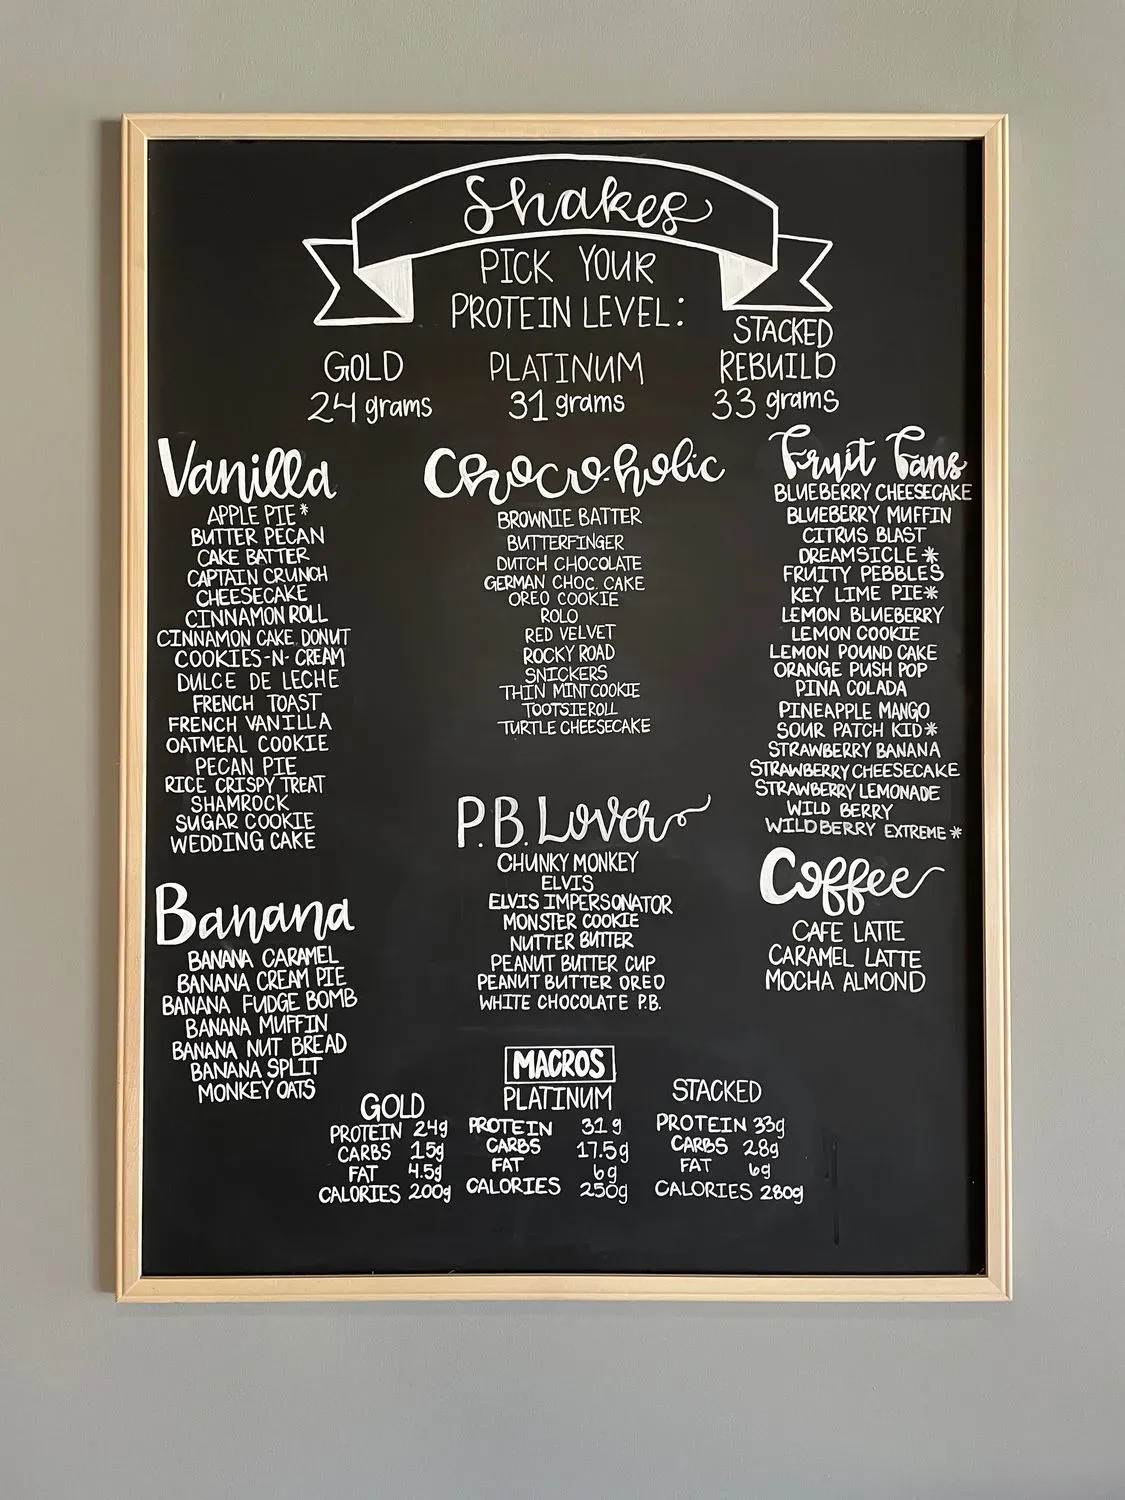 Shakes
PICK YOUR
PROTEIN LEVEL:
GOLD
24 grams
PLATINUM
31 grams
STACKED
REBUILD
33 grams
Vanilla
APPLE PIE*
BUTTER PECAN
CAKE BATTER
CAPTAIN CRUNCH
CHEESECAKE
CINNAMON ROLL
CINNAMON CAKE DONUT
COOKIES-N-CREAM
DULCE DE LECHE
FRENCH TOAST
FRENCH VANILLA
OATMEAL COOKIE
PECAN PIE
RICE CRISPY TREAT
SHAMROCK
SUGAR COOKIE
WEDDING CAKE
Banana
BANANA CARAMEL
BANANA CREAM PIE
BANANA FUDGE BOMB
BANANA MUFFIN
BANANA NUT BREAD
BANANA SPLIT
MONKEY OATS
Choco-holic
BROWNIE BATTER
BUTTERFINGER
DUTCH CHOCOLATE
GERMAN CHOC. CAKE
OREO COOKIE
ROLO
RED VELVET
ROCKY ROAD
SNICKERS
THIN MINT COOKIE
TOOTSIEROLL
TURTLE CHEESECAKE
P.B. Lover
CHUNKY MONKEY
ELVIS
ELVIS IMPERSONATOR
MONSTER COOKIE
NUTTER BUTTER
PEANUT BUTTER CUP
PEANUT BUTTER OREO
WHITE CHOCOLATE P.B.
Fruit Fans
BLUEBERRY CHEESECAKE
BLUEBERRY MUFFIN
CITRUS BLAST
DREAMSICLE*
FRUITY PEBBLES
KEY LIME PIE*
LEMON BLUEBERRY
LEMON COOKIE
LEMON POUND CAKE
ORANGE PUSH POP
PINA COLADA
PINEAPPLE MANGO
SOUR PATCH KID*
STRAWBERRY BANANA
STRAWBERRY CHEESECAKE
STRAWBERRY LEMONADE
WILD BERRY
WILDBERRY EXTREME*
Coffee
CAFE LATTE
CARAMEL LATTE
MOCHA ALMOND
MACROS
GOLD
PROTEIN 24g
CARBS 15g
FAT 4.5g
CALORIES 200g
PLATINUM
PROTEIN 31g
CARBS 17.5g
FAT 6g
CALORIES 250g
STACKED
PROTEIN 33g
CARBS 28g
FAT 6g
CALORIES 280g